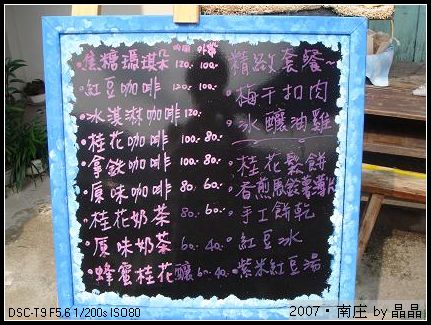 內用 外帶
·焦糖瑪琪朵 120. 100.
·紅豆咖啡 120. 100.
·冰淇淋咖啡 120.
·桂花咖啡 100. 80.
·拿鐵咖啡 100. 80.
·原味咖啡 80. 60.
·桂花奶茶 80. 60.
·原味奶茶 60. 40.
·蜂蜜桂花釀 60. 40.
精緻套餐~
·梅干扣肉
·冰釀油雞
·桂花鬆餅
·香煎馬鈴薯薄片
·手工餅乾
·紅豆冰
·紫米紅豆湯
DSC-T9 F5.6 1/200s ISO80
2007·南庄 by 晶晶